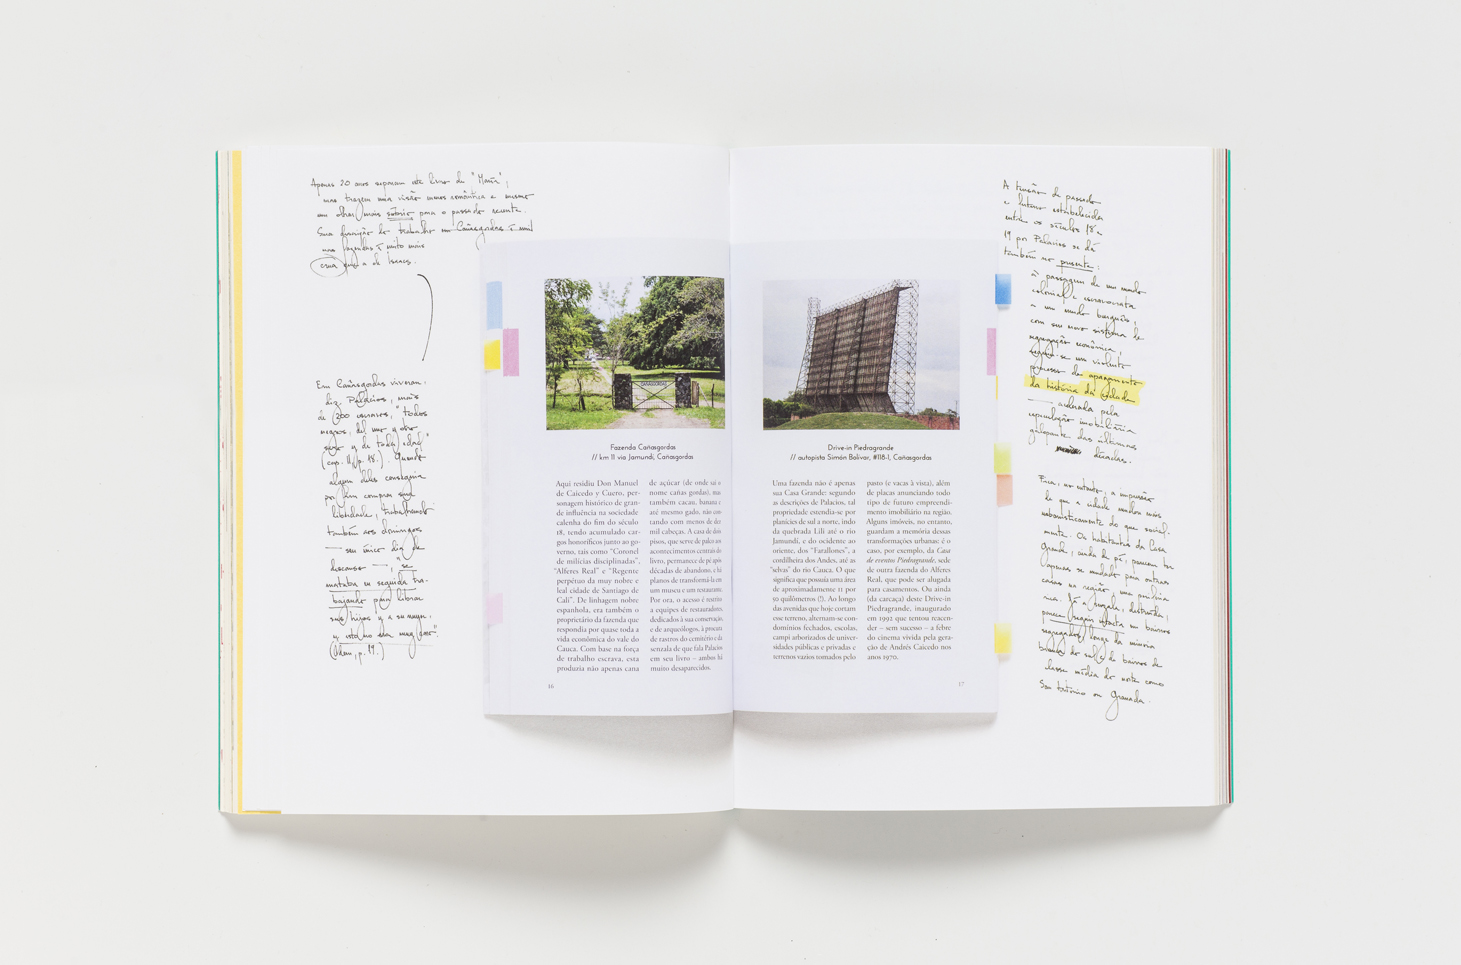 Apenas 20 anos separam este livro de "María",
mas trazem uma visão menos romântica e mesmo
um olhar mais sóbrio para o passado recente.
Sua descrição do trabalho em Cañasgordas é mil
nas fazendas é muito mais
crua que a de Isaacs.
Em Cañasgordas viveram,
diz Palacios, mais
de 200 escravos, "todos
negros, del mismo
sexo y de toda edad"
(cap. II, p. 18.). Quando
algum deles conseguia
por fim comprar sua
liberdade, trabalhando
também aos domingos
— seu único dia de
descanso —, "se
mataba en seguida tra-
bajando para libertar
sus hijos y a su mujer,
y
(Idem, p. 19.)
CAÑASGORDAS
Fazenda Cañasgordas
// km 11 via Jamundí, Cañasgordas
Aqui residiu Don Manuel
de Caicedo y Cuero, per-
sonagem histórico de gran-
de influência na sociedade
calenha do fim do século
18, tendo acumulado car-
gos honoríficos junto ao go-
verno, tais como "Coronel
de milícias disciplinadas",
"Alferes Real" e "Regente
perpétuo da muy nobre e
leal cidade de Santiago de
Cali". De linhagem nobre
espanhola, era também o
proprietário da fazenda que
respondia por quase toda a
vida econômica do vale do
Cauca. Com base na força
de trabalho escrava, esta
produzia não apenas cana
de açúcar (de onde sai o
nome cañas gordas), mas
também cacau, banana e
até mesmo gado, não con-
tando com menos de dez
mil cabeças. A casa de dois
pisos, que serve de palco aos
acontecimentos centrais do
livro, permanece de pé após
décadas de abandono, e há
planos de transformá-la em
um museu e um restaurante.
Por ora, o acesso é restrito
a equipes de restauradores,
dedicados à sua conservação,
e de arqueólogos, à procura
de rastros do cemitério e da
senzala de que fala Palacios
em seu livro – ambos há
muito desaparecidos.
16
Drive-in Piedragrande
// autopista Simón Bolívar, #118-1, Cañasgordas
Uma fazenda não é apenas
sua Casa Grande: segundo
as descrições de Palacios, tal
propriedade estendia-se por
planícies de sul a norte, indo
da quebrada Lili até o rio
Jamundí, e do ocidente ao
oriente, dos "Farallones", a
cordilheira dos Andes, até as
"selvas" do rio Cauca. O que
significa que possuía uma área
de aproximadamente 11 por
10 quilômetros (!). Ao longo
das avenidas que hoje cortam
esse terreno, alternam-se con-
domínios fechados, escolas,
campi arborizados de univer-
sidades públicas e privadas e
terrenos vazios tomados pelo
pasto (e vacas à vista), além
de placas anunciando todo
tipo de futuro empreendi-
mento imobiliário na região.
Alguns imóveis, no entanto,
guardam a memória dessas
transformações urbanas: é o
caso, por exemplo, da Casa
de eventos Piedragrande, sede
de outra fazenda do Alferes
Real, que pode ser alugada
para casamentos. Ou ainda
(da carcaça) deste Drive-in
Piedragrande, inaugurado
em 1992 que tentou reacen-
der – sem sucesso – a febre
do cinema vivida pela gera-
ção de Andrés Caicedo nos
anos 1970.
17
A tensão de passado
e futuro estabelecida
entre os séculos 18 e
19 por Palacios se dá
também no presente:
à passagem de um mundo
colonial e escravocrata
a um mundo burguês,
com seu novo sistema de
segregação econômica,
segue-se um violento
processo de apagamento
da história da cidade
— acelerada pela
especulação imobiliária
galopante das últimas
décadas.
Fica, no entanto, a impressão
de que a cidade mudou mais
urbanisticamente do que social-
mente. Os habitantes da Casa
Grande, ainda de pé, parecem ter
apenas se mudado para outras
casas na região, uma periferia
rica. Já a senzala, destruída,
parece seguir intacta em bairros
segregados, longe da
bairros de
São Antônio ou Granada.